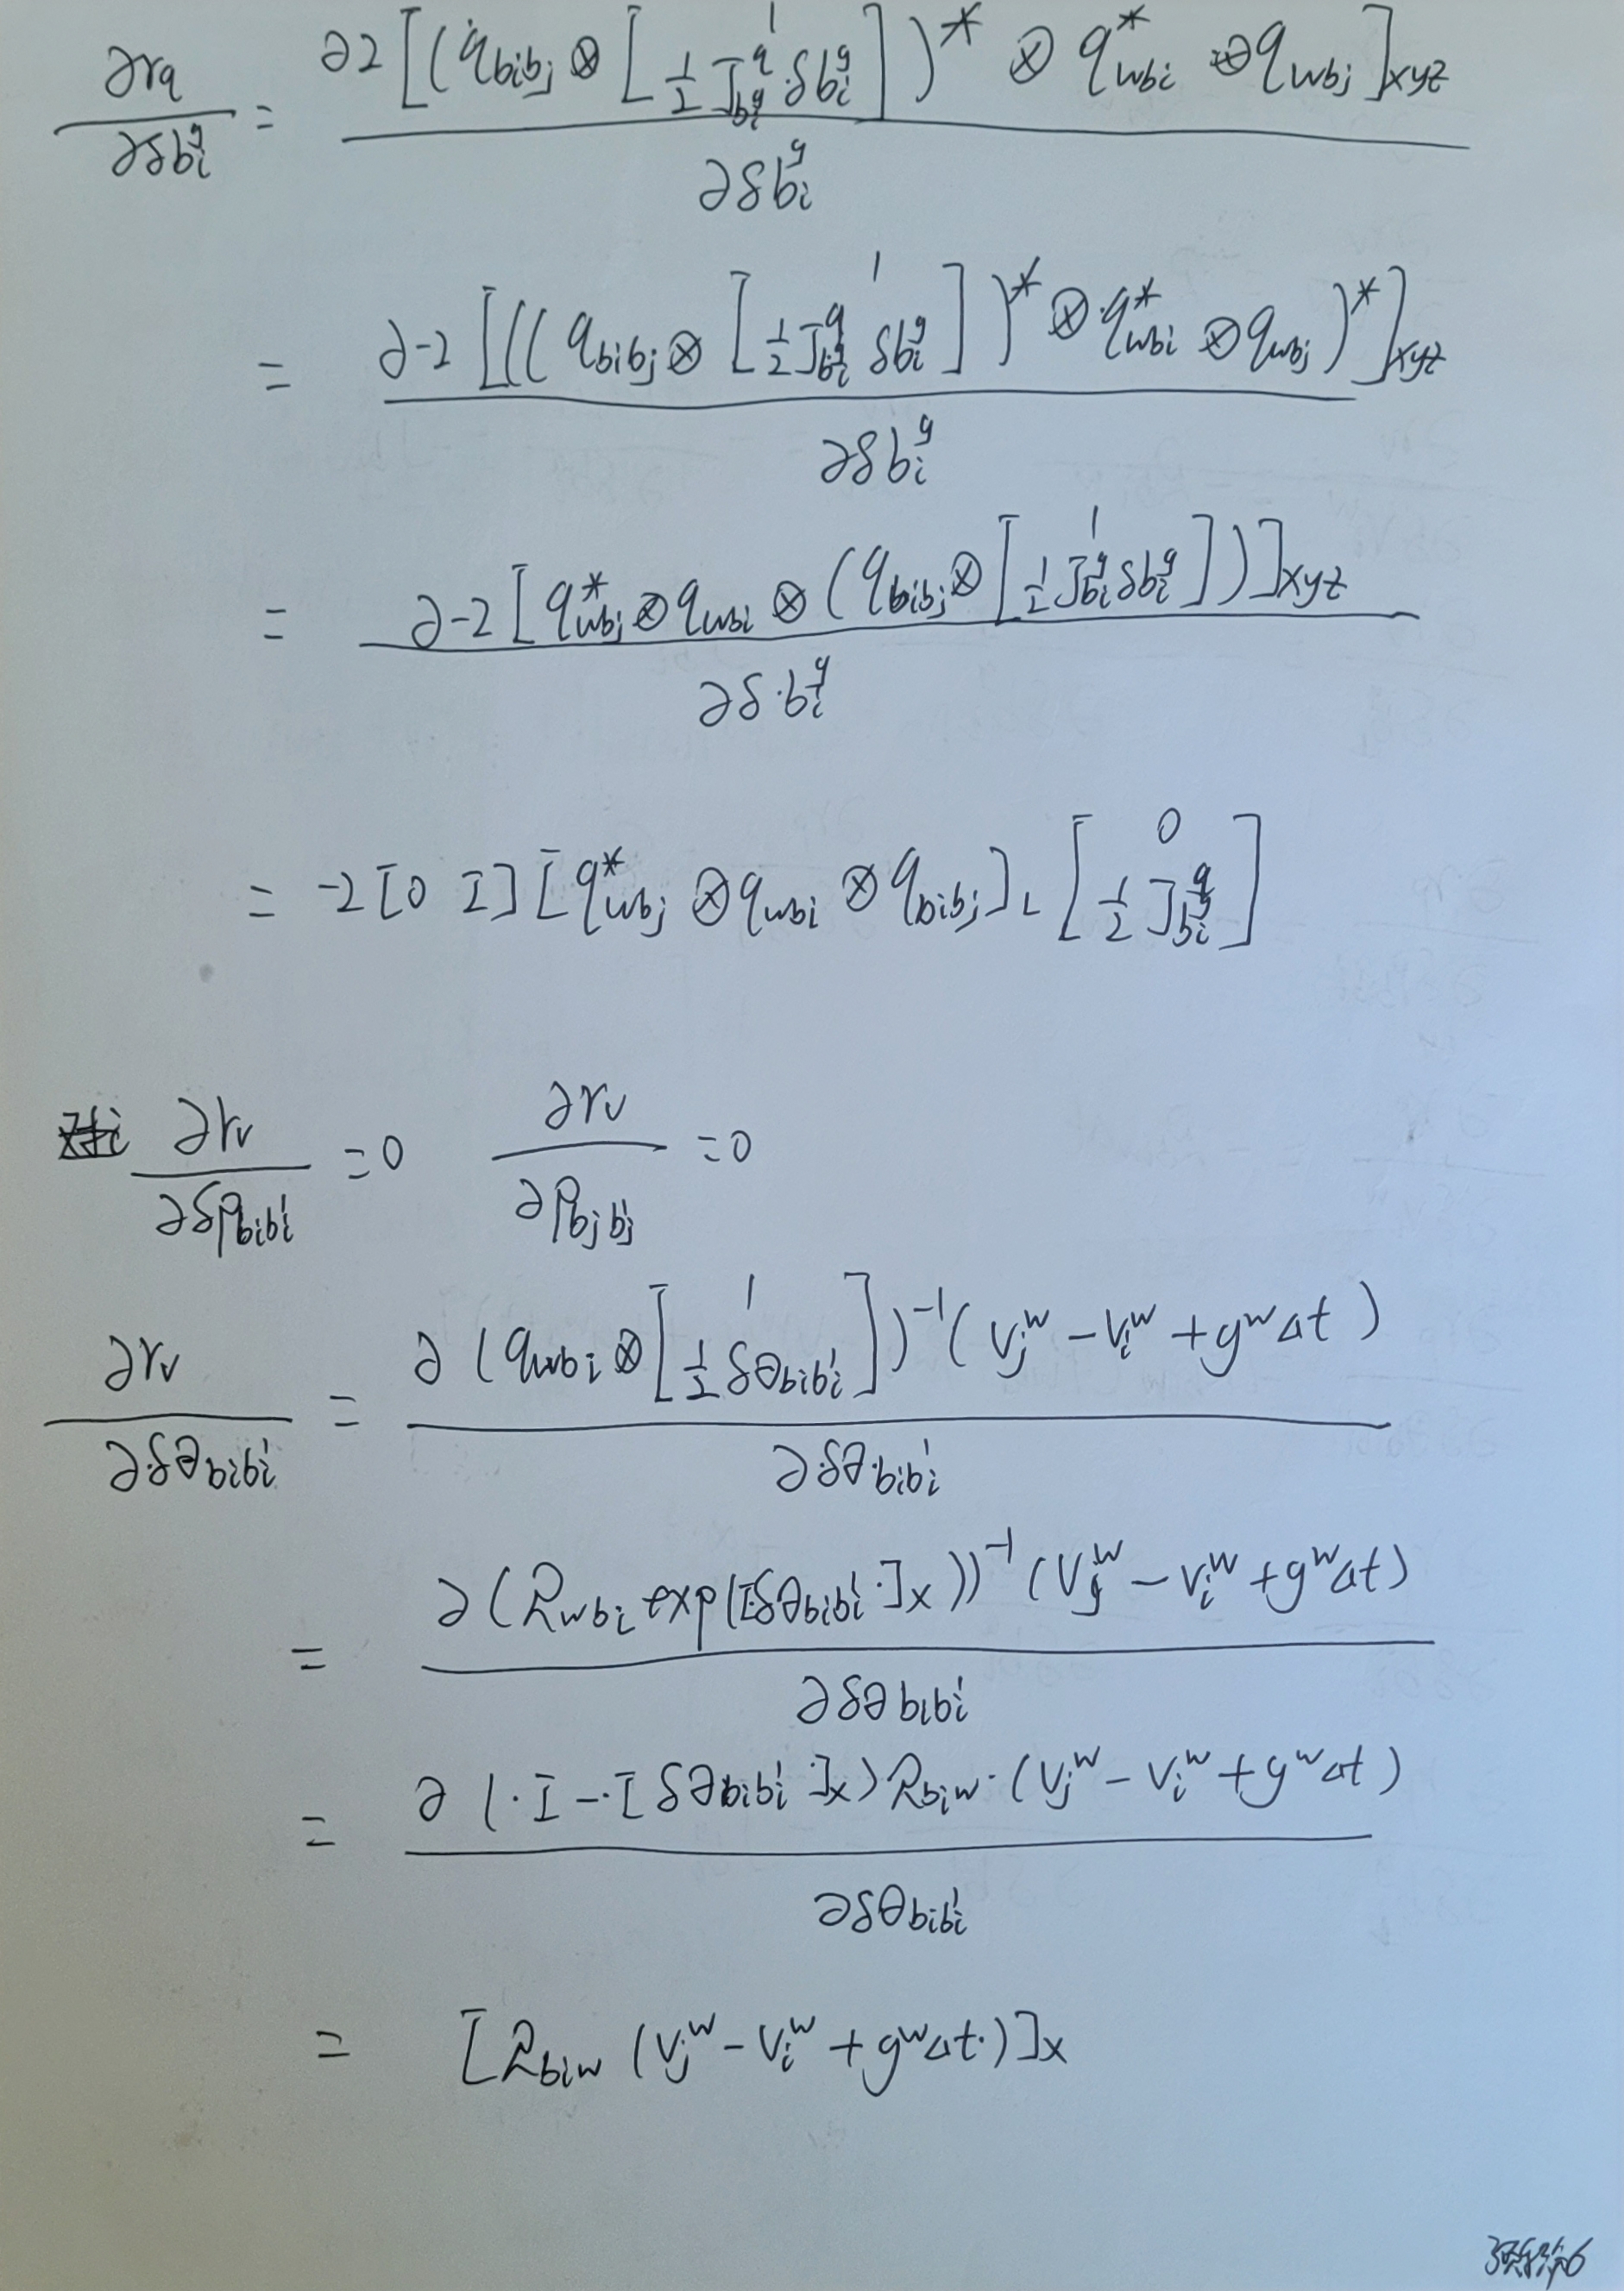 ∂r_q / ∂δb_i^g = ∂2[(q_{bibj} ⊗ [1; 1/2 J_{b_i^g}^q δb_i^g])^* ⊗ q_{wbi}^* ⊗ q_{wbj}]_{xyz} / ∂δb_i^g
= ∂-2[((q_{bibj} ⊗ [1; 1/2 J_{b_i^g}^q δb_i^g])^* ⊗ q_{wbi}^* ⊗ q_{wbj})^*]_{xyz} / ∂δb_i^g
= ∂-2[q_{wbj}^* ⊗ q_{wbi} ⊗ (q_{bibj} ⊗ [1; 1/2 J_{b_i^g}^q δb_i^g])]_{xyz} / ∂δb_i^g
= -2[0 I][q_{wbj}^* ⊗ q_{wbi} ⊗ q_{bibj}]_L [0; 1/2 J_{b_i^g}^q]
∂r_v / ∂δp_{bibi'} = 0 ∂r_v / ∂p_{bjbj'} = 0
∂r_v / ∂δθ_{bibi'} = ∂(q_{wbi} ⊗ [1; 1/2 δθ_{bibi'}])^{-1}(v_j^w - v_i^w + g^w Δt) / ∂δθ_{bibi'}
= ∂(R_{wbi} exp([δθ_{bibi'}]_x))^{-1}(v_j^w - v_i^w + g^w Δt) / ∂δθ_{bibi'}
= ∂(I - [δθ_{bibi'}]_x)R_{biw}(v_j^w - v_i^w + g^w Δt) / ∂δθ_{bibi'}
= [R_{biw}(v_j^w - v_i^w + g^w Δt)]_x